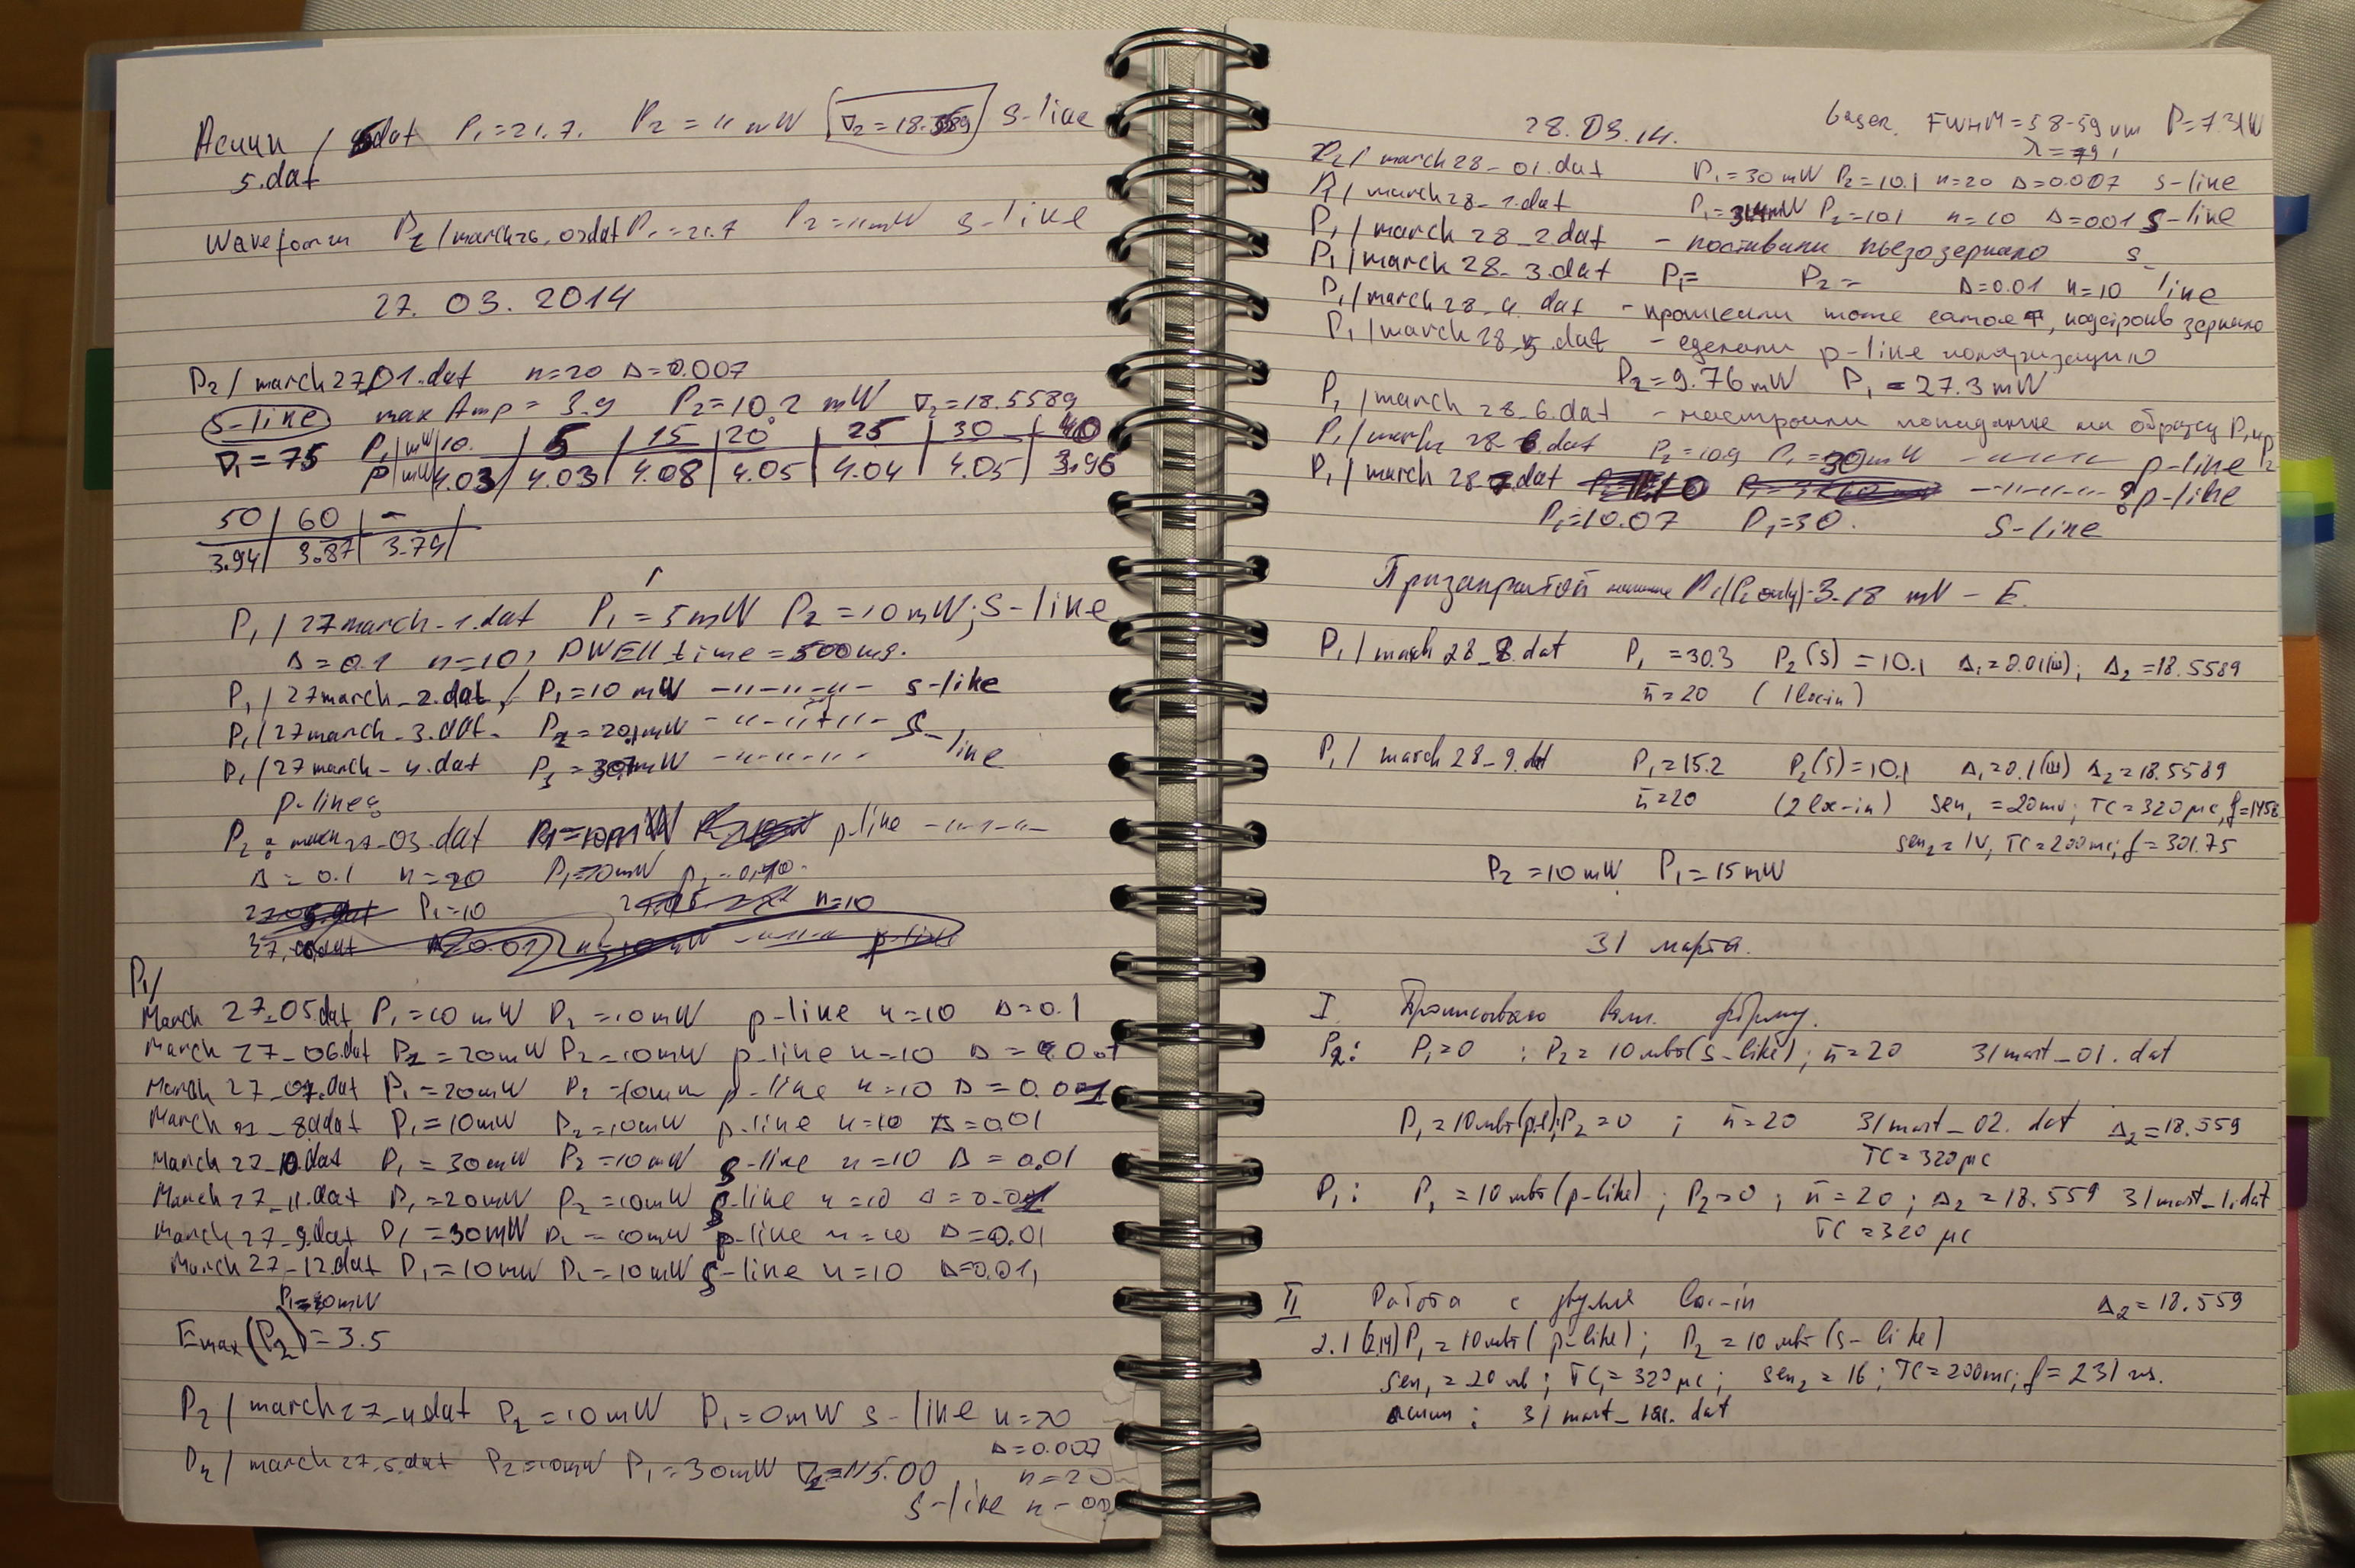 5.dat P₁=21.7. P₂=11 mW ∇₂=18.5589 s-like
5.dat
Waveform P₂/march26_03dat P₁=21.7 P₂=11mW s-like
27. 03. 2014
P₂/march27_01.dat n=20 Δ=0.007
s-like max Amp = 3.9 P₂=10.2 mW ∇₂=18.5589
∇₁=75 P₁/mW 10. 5 15 20 25 30 40
P/mW 4.03 4.03 4.08 4.05 4.04 4.05 3.96
50 60 -
3.94 3.87 3.79
P₁/27march-1.dat P₁=5mW P₂=10mW; s-like
Δ=0.1 n=10, DWELL time=500ms.
P₁/27march-2.dat, P₁=10 mW -"-"-"- s-like
P₁/27march-3.dat. P₂=20mW -"-"-"- s-like
P₁/27march-4.dat =30mW -"-"-"- s-like
p-like:
P₂: march27-03.dat p-like -"-"-"-
Δ=0.1 n=20 P₁=10mW
P₁=10 n=10
p-like
P₁/
March 27_05.dat P₁=10mW P₂=10mW p-like n=10 Δ=0.1
March 27_06.dat =20mW P₂=10mW p-like n=10 Δ=
March 27_07.dat P₁=20mW P₂=10mW p-like n=10 Δ=0.01
March 27_8.dat P₁=10mW P₂=10mW p-like n=10 Δ=0.01
March 27_10.dat P₁=30mW P₂=10mW s-like n=10 Δ=0.01
March 27_11.dat P₁=20mW P₂=10mW s-like n=10 Δ=0.01
March 27_9.dat P₁=30mW P₂=10mW p-like n=10 Δ=0.01
March 27_12.dat P₁=10mW P₂=10mW s-like n=10 Δ=0.01,
Emax(P₂)=3.5
P₂/march27_4.dat P₂=10mW P₁=0mW s-like n=20
Δ=0.007
P₂/march27_5.dat P₂=10mW P₁=30mW n=20
s-like
28.03.14. Laser FWHM=58-59 nm
λ=791
P₂/march28-01.dat P₁=30mW P₂=10.1 n=20 Δ=0.007 s-like
P₁/march28_1.dat P₂=10.1 n=10 Δ=0.01 s-like
P₁/march 28_2.dat - поставили пьезозеркало
P₁/march 28-3.dat P₁= P₂= Δ=0.01 n=10 s-like
P₁/march28_4.dat - промеряли тоже самое, подстроив зеркало
P₁/march28_5.dat - сделали p-like поляризацию
P₂=9.76mW P₁=27.3mW
P₁/march 28-6.dat - настроили попадание на образец P₁ и P₂
P₁/march 28-6.dat P₂=10.9 P₁=30mW -"-"-"- p-like
P₁/march 28-7.dat -"-"-"- p-like
P₁=10.07 P₁=30. s-like
При закрытой P₁(P₂ only)-3.18 mV - E.
P₁/march28_8.dat P₁=30.3 P₂(s)=10.1 Δ₁=0.01(ш); Δ₂=18.5589
n̄=20 (1 lox-in)
P₁/march28_9.dat P₁=15.2 P₂(s)=10.1 Δ₁=0.1(ш) Δ₂=18.5589
n̄=20 (2 lox-in) sen₁=20mv; TC=320μc, f=1458
sen₂=1V, TC=200mc; f=301.75
P₂=10mW P₁=15mW
31 марта.
I. форму.
P₂: P₁=0 ; P₂=10мвт(s-like); n̄=20 31mart_01.dat
P₁=10мвт(p-l); P₂=0 ; n̄=20 31mart_02.dat Δ₂=18.559
TC=320μc
P₁: P₁=10мвт(p-like); P₂=0; n̄=20; Δ₂=18.559 31mart_1.dat
TC=320μc
II Работа с двумя lox-in Δ₂=18.559
2.1 P₁=10мвт(p-like); P₂=10мвт(s-like)
sen₁=20мв; TC₁=320μc; sen₂=1В; TC=200mc; f=231